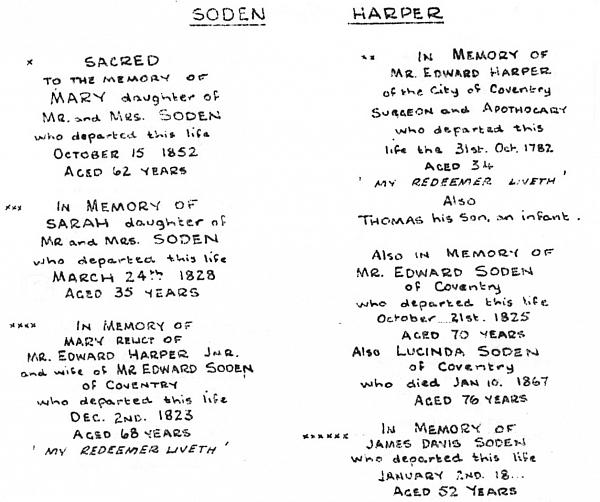 SODEN
* SACRED
TO THE MEMORY OF
MARY daughter of
MR. and MRS. SODEN
who departed this life
OCTOBER 15 1852
AGED 62 YEARS
*** IN MEMORY OF
SARAH daughter of
MR and MRS. SODEN
who departed this life
MARCH 24th 1828
AGED 35 YEARS
**** IN MEMORY OF
MARY RELICT OF
MR. EDWARD HARPER JNR.
and wife of MR EDWARD SODEN
OF COVENTRY
who departed this life
DEC. 2ND. 1823
AGED 68 YEARS
' MY REDEEMER LIVETH '
HARPER
** IN MEMORY OF
MR. EDWARD HARPER
of the City of Coventry
SURGEON and APOTHOCARY
who departed this
life the 31st. Oct. 1782
AGED 34
' MY REDEEMER LIVETH '
Also
THOMAS his son, an infant.
Also IN MEMORY OF
MR. EDWARD SODEN
of Coventry
who departed this life
October 21st. 1825
AGED 70 YEARS
Also LUCINDA SODEN
of Coventry
who died JAN 10. 1867
AGED 76 YEARS
****** IN MEMORY OF
JAMES DAVIS SODEN
who departed this life
JANUARY 2ND. 18...
AGED 52 YEARS